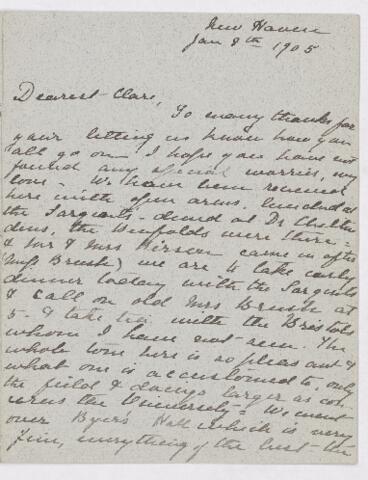 New Haven
Jan 8th 1905
Dearest Clare,
So many thanks for
your letting us know how you
all go on. I hope you have not
found any special worries, my
love. We have been received
here with open arms, lunched at
the Sargents - dined at Dr
dens, the were there -
& Mr & Mrs came in after
(Miss Brush) we are to take early
dinner today with the Sargents
& call on old Mrs Brush at
5 - & take tea with the Bristols
whom I have not seen. The
whole tone here is so pleasant &
what one is accustomed to, only
the field & doings larger as con-
cerns the University = We went
over Byers Hall which is very
fine, everything of the best - the